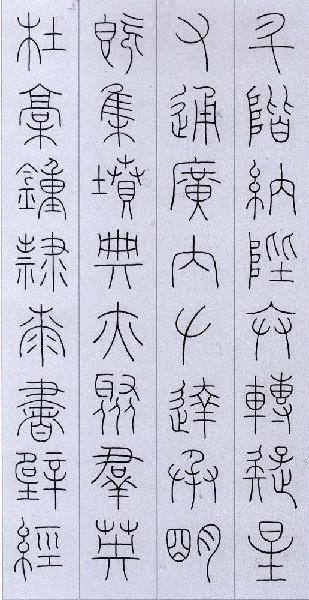 升階納陛弁轉疑星
右通廣內左達承明
既集墳典亦聚羣英
杜稾鐘隸漆書壁經